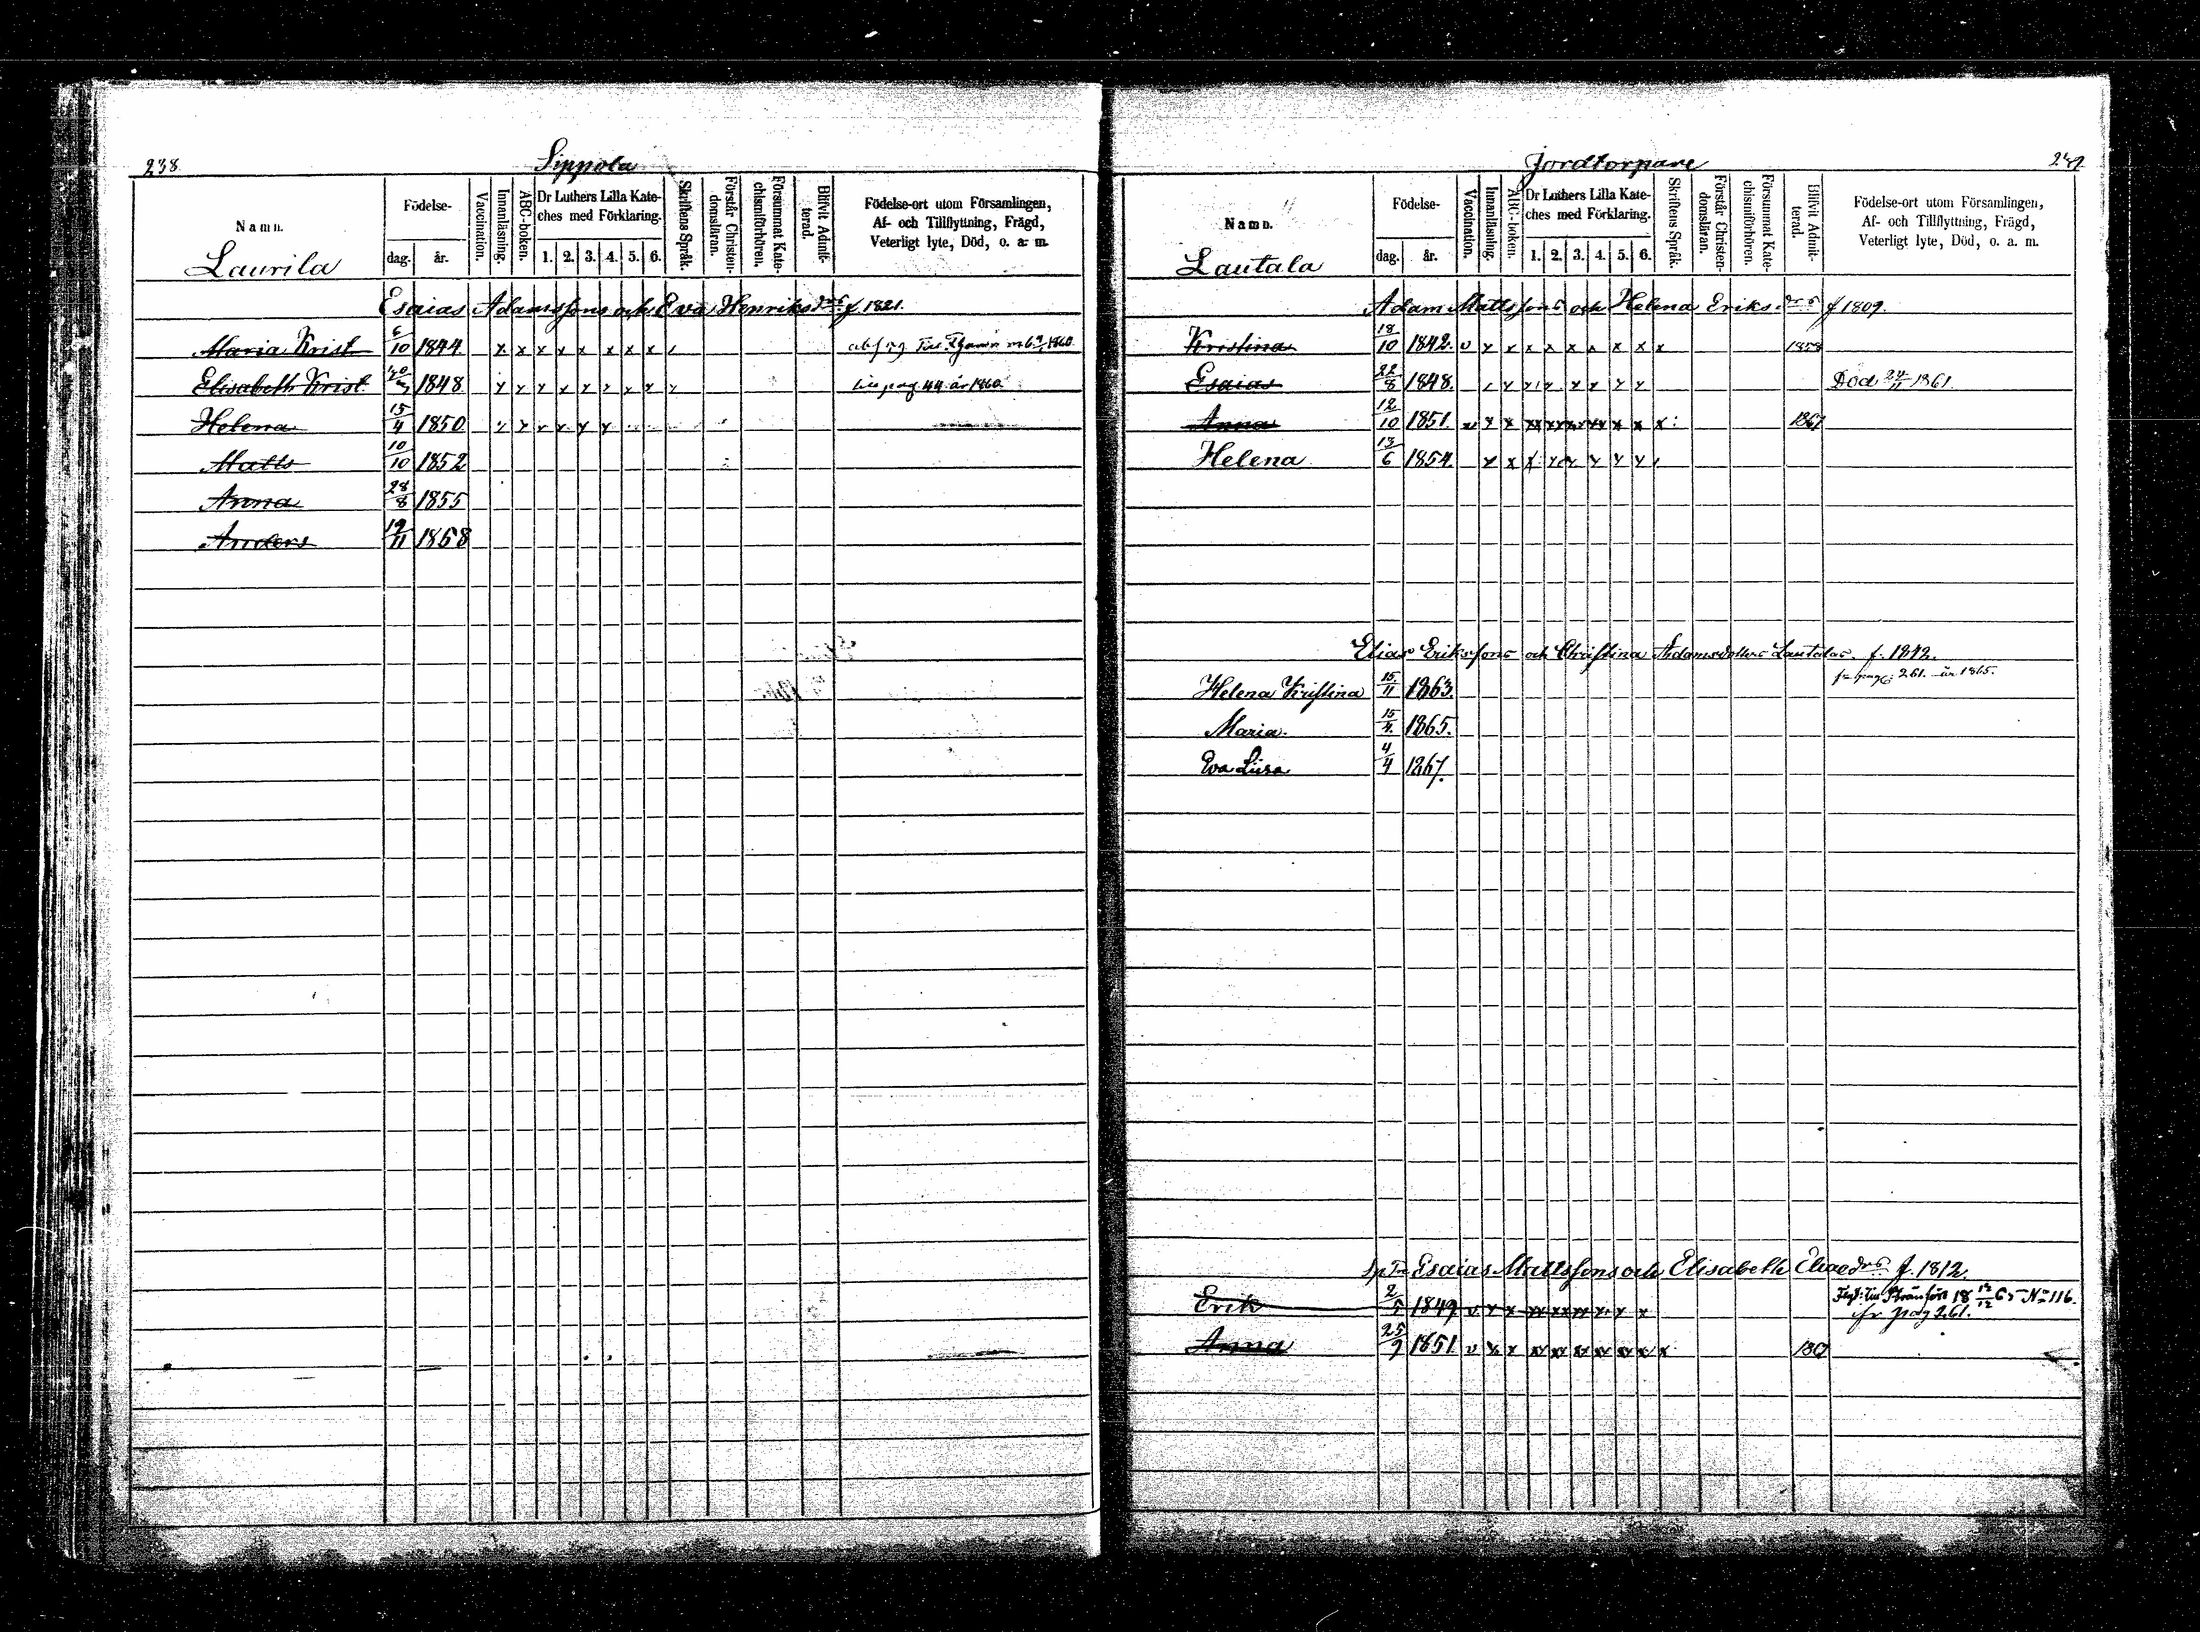 238
Sippola
Namn.
Födelse-
dag.
år.
Vaccination.
Innanläsning.
ABC-boken.
Dr Luthers Lilla Kate-
ches med Förklaring.
1. 2. 3. 4. 5. 6.
Skriftens Språk.
Förstår Christen-
domsläran.
Försummat Kate-
chismiförhören.
Blifvit Admit-
terad.
Födelse-ort utom Församlingen,
Af- och Tillflyttning, Frägd,
Veterligt lyte, Död, o. a. m.
Laurila
Esaias Adamssons och Eva Henriksdrs f. 1821.
Maria Krist 6/10 1844 x x x x x x x x
Elisabeth Krist 1848 x x x x x x x x x pag. 44 år 1860.
Helena 15/4 1850 x x x x x x
Matts 10/10 1852
Anna 28/8 1855
Anders 19/11 1858
Jordtorpare
Namn.
Födelse-
dag.
år.
Vaccination.
Innanläsning.
ABC-boken.
Dr Luthers Lilla Kate-
ches med Förklaring.
1. 2. 3. 4. 5. 6.
Skriftens Språk.
Förstår Christen-
domsläran.
Försummat Kate-
chismiförhören.
Blifvit Admit-
terad.
Födelse-ort utom Församlingen,
Af- och Tillflyttning, Frägd,
Veterligt lyte, Död, o. a. m.
Lautala
Adam Mattssons och Helena Eriksdrs f 1809.
Kristina 18/10 1842. v x x x x x x x x x 1858
Esaias 22/8 1848. x x x x x x x x Död 24/11 1861.
Anna 12/10 1851 v x x xx xx xx xx x x x 1867
Helena 13/6 1854. x x x x x x x x
Elias Erikssons och Christina Adamsdotters Lautalas. f. 1842.
fr pag: 261. år 1865.
Helena Kristina 15/11 1863.
Maria 15/4 1865.
Eva Liisa 4/4 1867.
Esaias Mattssons och Elisabeth Eliaedrs f. 1812.
Erik 2/5 1849 v x x xx xx xx x x x
fr pag 261.
Anna 25/9 1851 v x x xx xx xx xx xx xx x